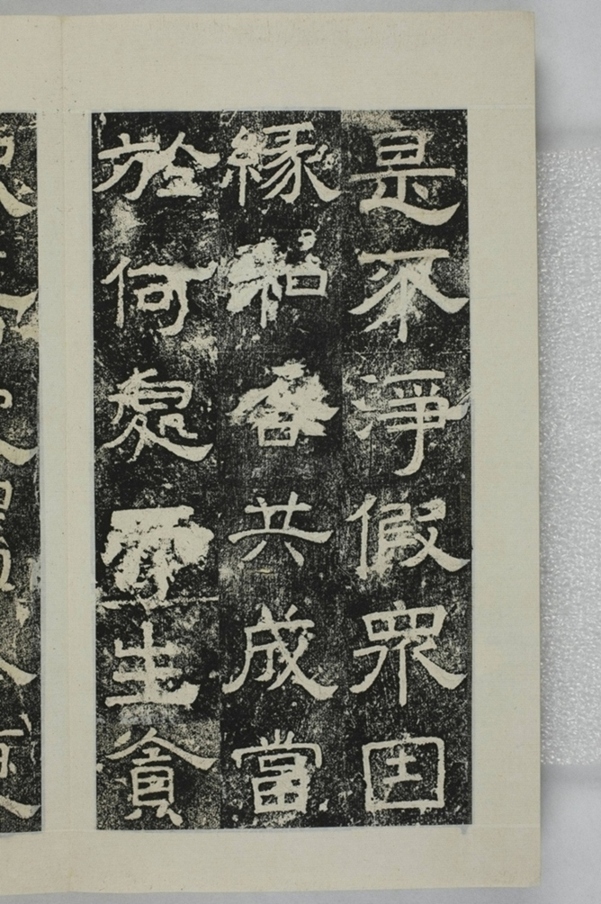 是不淨假衆因
緣和合共成當
於何處而生貪